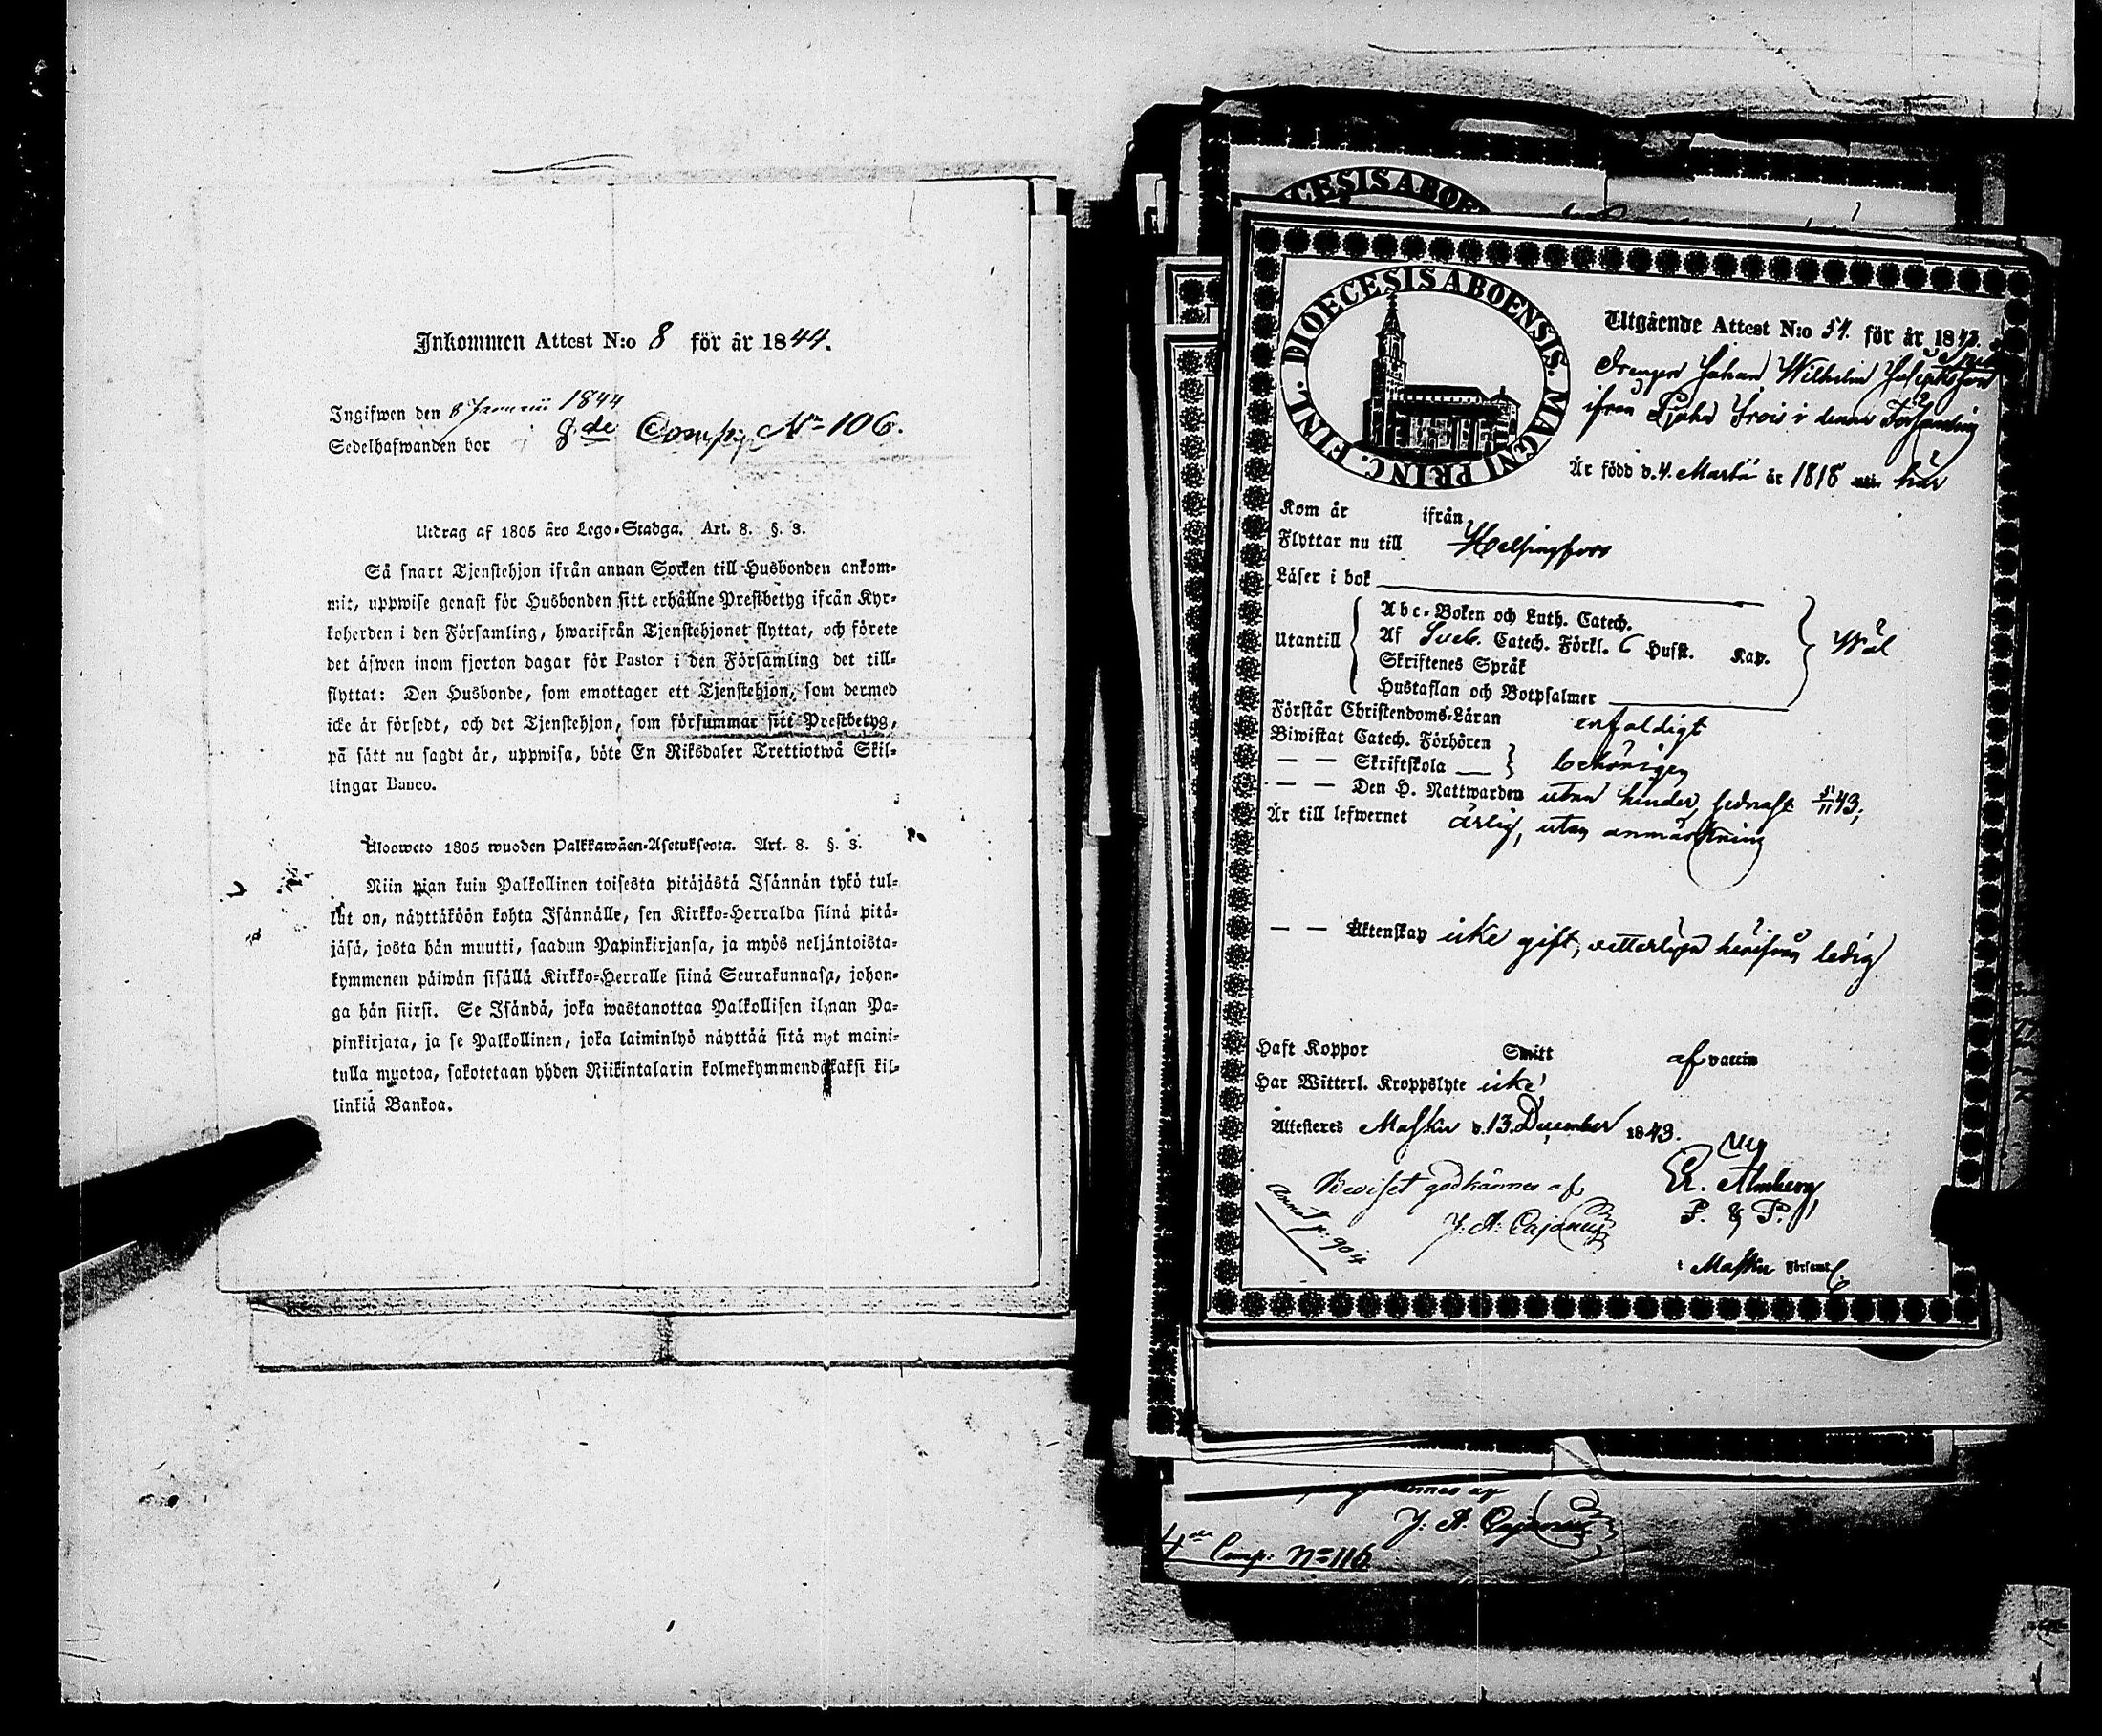 Inkommen Attest N:o 8 för år 1844.
Ingifwen den 8 Januarii 1844
Sedelhafwanden bor i 8de Comp. No 106.
Utdrag af 1805 års Lego-Stadga. Art. 8. §. 3.
Så snart Tjenstehjon ifrån annan Socken till Husbonden ankom-
mit, uppwise genast för Husbonden sitt erhållne Prestbetyg ifrån Kyr-
koherden i den Församling, hwarifrån Tjenstehjonet flyttat, och förete
det äfwen inom fjorton dagar för Pastor i den Församling det till-
flyttat: Den Husbonde, som emottager ett Tjenstehjon, som dermed
icke är försedt, och det Tjenstehjon, som försummar sitt Prestbetyg,
på sätt nu sagdt är, uppwisa, böte En Riksdaler Trettiotwå Skil-
lingar Banco.
Ulosweto 1805 wuoden Palkkawäen-Asetuksesta. Art. 8. §. 3.
Niin pian kuin Palkollinen toisesta pitäjästä Isännän tykö tul-
lut on, näyttäköön kohta Isännälle, sen Kirkko-Herralda siinä pitä-
jäsä, josta hän muutti, saadun Papinkirjansa, ja myös neljäntoista-
kymmenen päiwän sisällä Kirkko-Herralle siinä Seurakunnasa, johon-
ga hän siirsi. Se Isändä, joka wastanottaa Palkollisen ilman Pa-
pinkirjata, ja se Palkollinen, joka laiminlyö näyttää sitä nyt maini-
tulla muotoa, sakotetaan yhden Riikintalarin kolmekymmendäkaksi kil-
linkiä Bankoa.
DIOECESIS ABOENSIS. MAGNI PRINC. FINL.
Utgående Attest N:o 54. för år 1843.
Drengen Johan Wilhelm Josephsson
ifrån Frois i denna Församling
Är född d. 4. Martii år 1818 här
Kom år ifrån
Flyttar nu till Helsingfors
Läser i bok
Abc-Boken och Luth. Catech.
Utantill Af Sveb. Catech. Förkl. 6 Hufst. Kap. Wäl
Skriftenes Språk
Hustaflan och Botpsalmer
Förstår Christendoms-Läran enfaldigt
Biwistat Catech. Förhören
— — Skriftskola behörigen
— — Den H. Nattwarden utan hinder, sednast 5/11 43;
Är till lefwernet ärlig, utan anmärkning
— — Äktenskap icke gift, vetterligen härifrån ledig
Haft Koppor Smitt af vaccin
Har Witterl. Kroppslyte icke
Attesteras Masku d. 13. December 1843.
Er. Almberg
P. & P.
Beviset godkännes af
J. A. Cajanus
Annot p: 904
i Masku Församl.
J. A. Cajanus
4de Comp: No 116